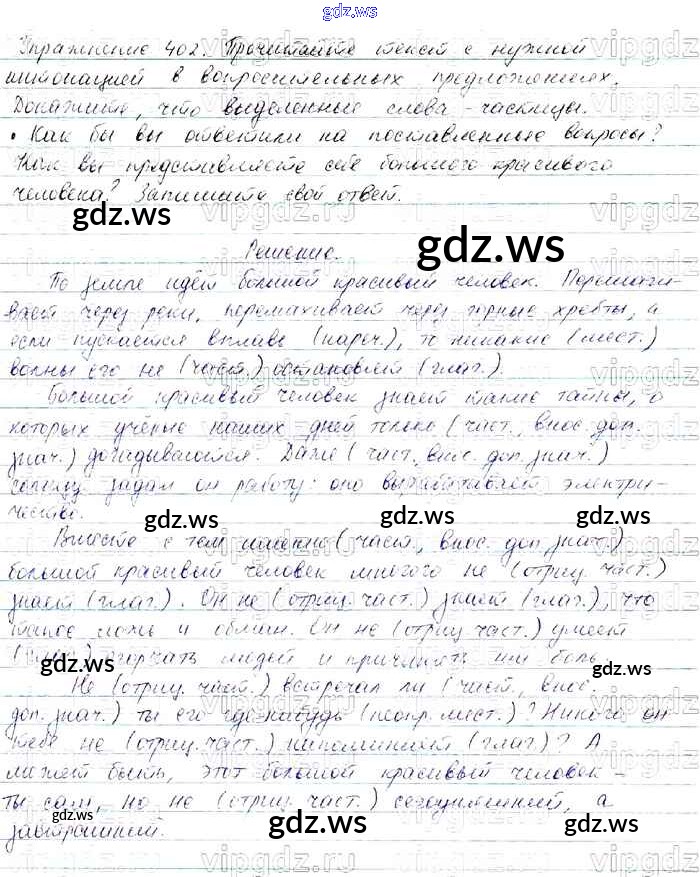 gdz.ws
Упражнение 402. Прочитайте текст с нужной
интонацией в вопросительных предложениях.
Докажите, что выделенные слова - частицы.
• Как бы вы ответили на поставленные вопросы?
Как вы представляете себе большого красивого
человека? Запишите свой ответ.
gdz.ws
gdz.ws
Решение.
По земле идёт большой красивый человек. Перешаги-
вает через реки, перемахивает через горные хребты, и
если пускается вплавь (нареч.), то никакие (мест.)
волны его не (част.) остановят (глаг.).
Большой красивый человек знает такие тайны, о
которых учёные наших дней только (част., внос. доп.
знач.) догадываются. Даже (част., внос. доп. знач.)
солнцу задал он работу: оно вырабатывает электри-
чество.
gdz.ws gdz.ws gdz.ws
Вместе с тем именно (част., внос. доп. знач.)
большой красивый человек многого не (отриц. част.)
знает (глаг.). Он не (отриц. част.) знает (глаг.), что
такое ложь и обман. Он не (отриц. част.) умеет
огорчать людей и причинять им боль.
gdz.ws gdz.ws gdz.ws
Не (отриц. част.) встречал ли (част., внос.
доп. знач.) ты его где-нибудь (неопр. мест.)? Никого он
тебе не (отриц. част.) напоминает (глаг.)? А
может быть, этот большой красивый человек -
ты сам, но не (отриц. част.) сегодняшний, а
завтрашний.
gdz.ws gdz.ws
gdz.ws